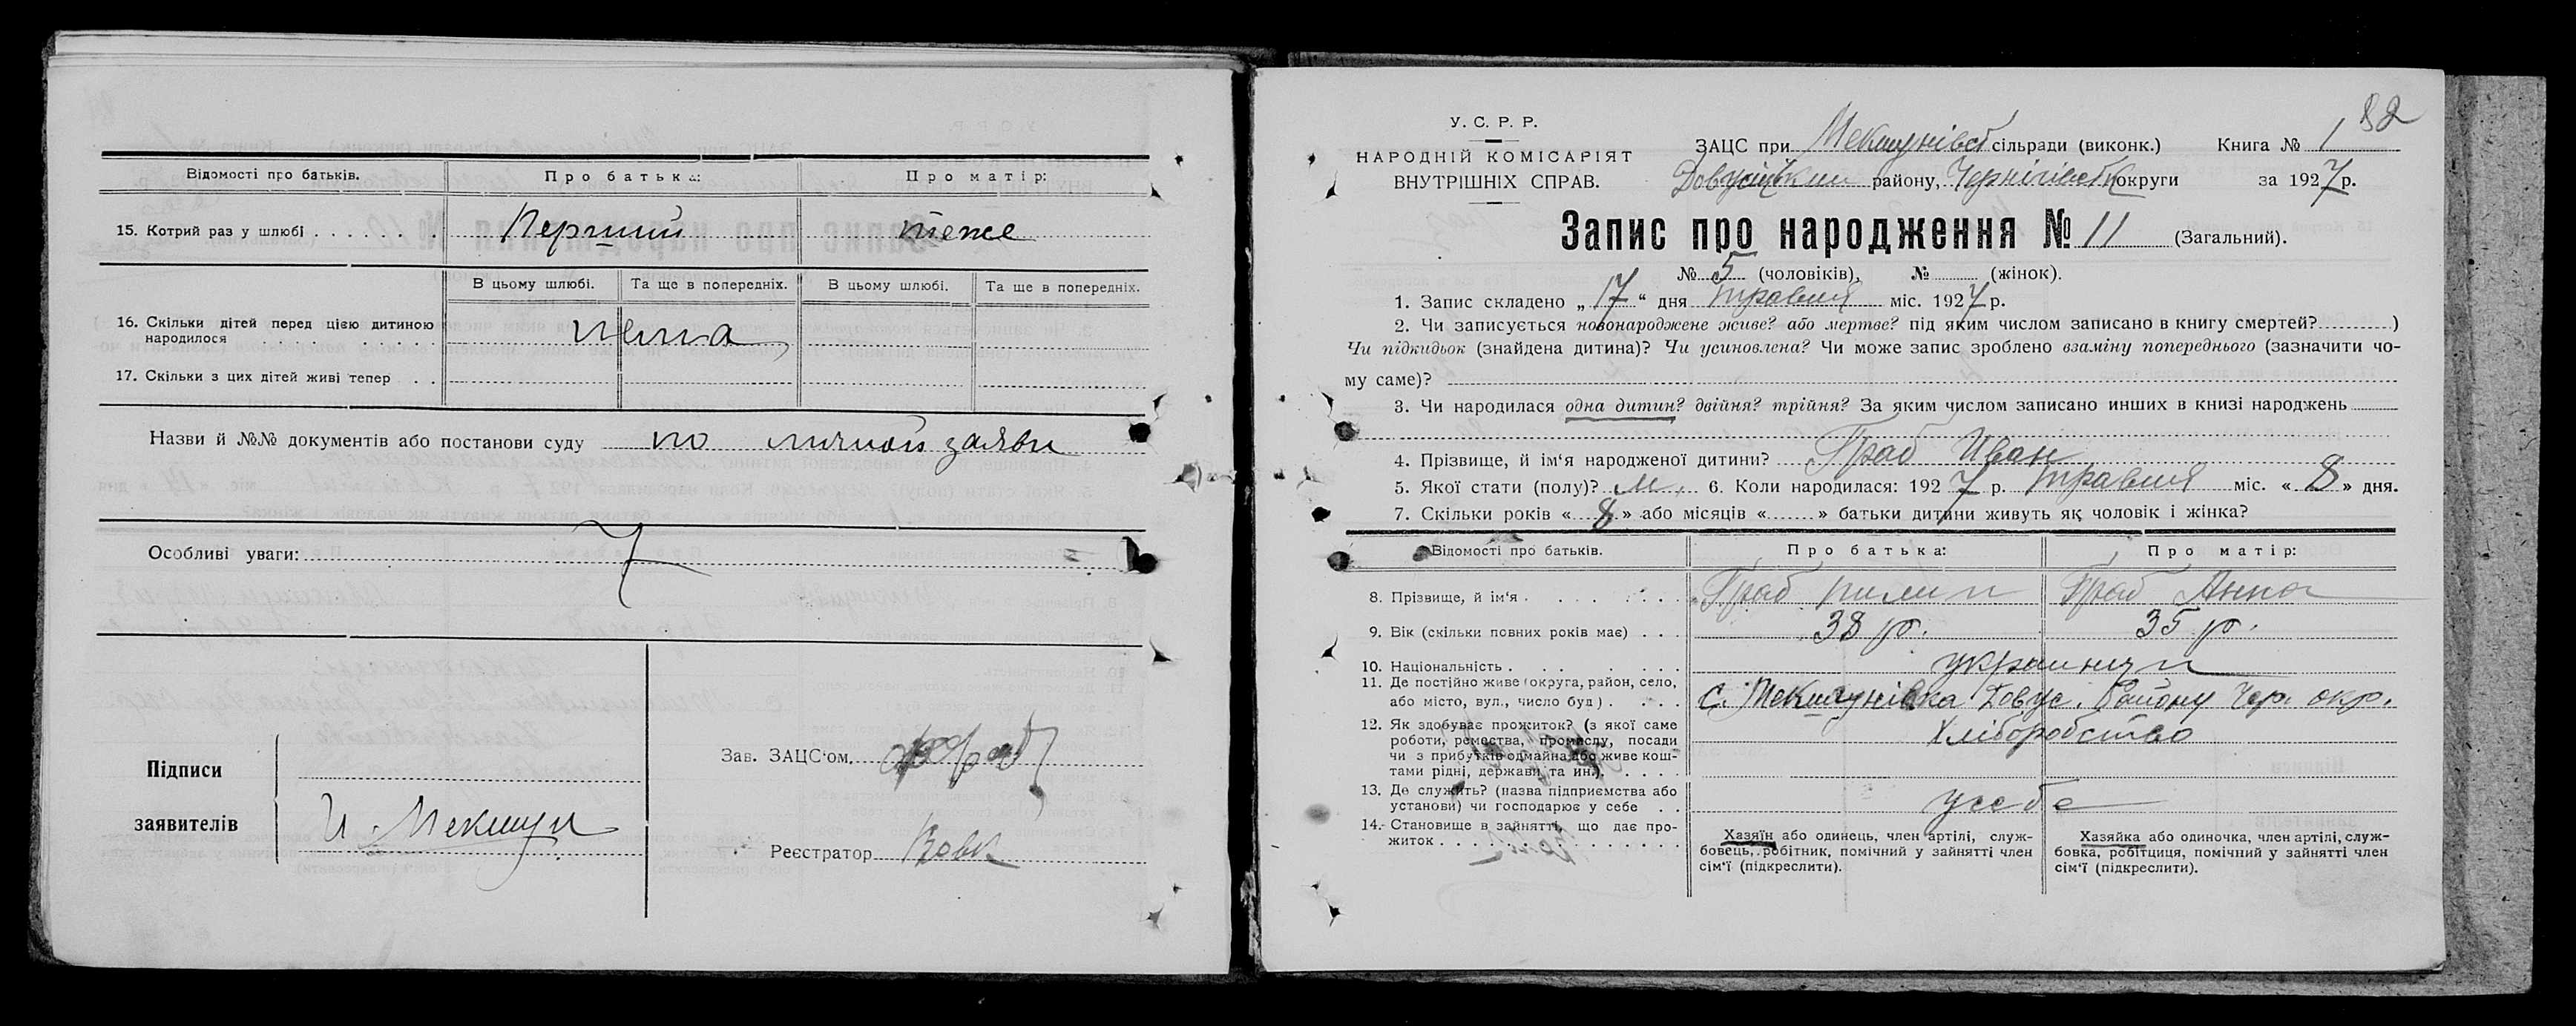 Відомості про батьків. Про батька: Про матір:
15. Котрий раз у шлюбі . . . . . . . Перший теже
В цьому шлюбі. Та ще в попередніх. В цьому шлюбі. Та ще в попередніх.
16. Скільки дітей перед цією дитиною
народилося . . . . . . . . . нема
17. Скільки з цих дітей живі тепер . .
Назви й №№ документів або постанови суду по личной заяви
Особливі уваги:
Підписи
заявителів
И. Мекшун
Зав. ЗАЦС'ом.
Реєстратор Вовк
82
У. С. Р. Р.
НАРОДНІЙ КОМІСАРІЯТ
ВНУТРІШНІХ СПРАВ.
ЗАЦС при Мекшунівсь сільради (виконк.) Книга № 1
району, Чернігівськ округи за 1927 р.
Запис про народження № 11 (Загальний).
№ 5 (чоловіків), № (жінок).
1. Запис складено „17“ дня травня міс. 1927 р.
2. Чи записується новонароджене живе? або мертве? під яким числом записано в книгу смертей? )
Чи підкидьок (знайдена дитина)? Чи усиновлена? Чи може запис зроблено взаміну попереднього (зазначити чо-
му саме)?
3. Чи народилася одна дитин? двійня? трійня? За яким числом записано инших в книзі народжень
4. Прізвище, й ім'я народженої дитини? Граб Иван
5. Якої стати (полу)? м. 6. Коли народилася: 1927 р. травня міс. «8» дня.
7. Скільки років «8» або місяців « » батьки дитини живуть як чоловік і жінка?
Відомості про батьків. Про батька: Про матір:
8. Прізвище, й ім'я . . . . . . . Граб пилип Граб Анна
9. Вік (скільки повних років має) . . . 38 р. 35 р.
10. Національність . . . . . . . украинци
11. Де постійно живе (округа, район, село,
або місто, вул., число буд) . . . . с. Мекшунівка Довус. Району Чер. окр.
12. Як здобуває прожиток? (з якої саме
роботи, ремества, промислу, посади
чи з прибутків одмайна, або живе кош-
тами рідні, держави та ин.). . . . . Хліборобство
13. Де служить? (назва підприємства або
установи) чи господарює у себе . . усебе
14. Становище в зайнятті, що дає про-
житок . . . . . . . . . . . . . .
Хазяїн або одинець, член артілі, служ-
бовець, робітник, помічний у зайнятті член
сім'ї (підкреслити).
Хазяйка або одиночка, член артілі, служ-
бовка, робітциця, помічний у зайнятті член
сім'ї (підкреслити).